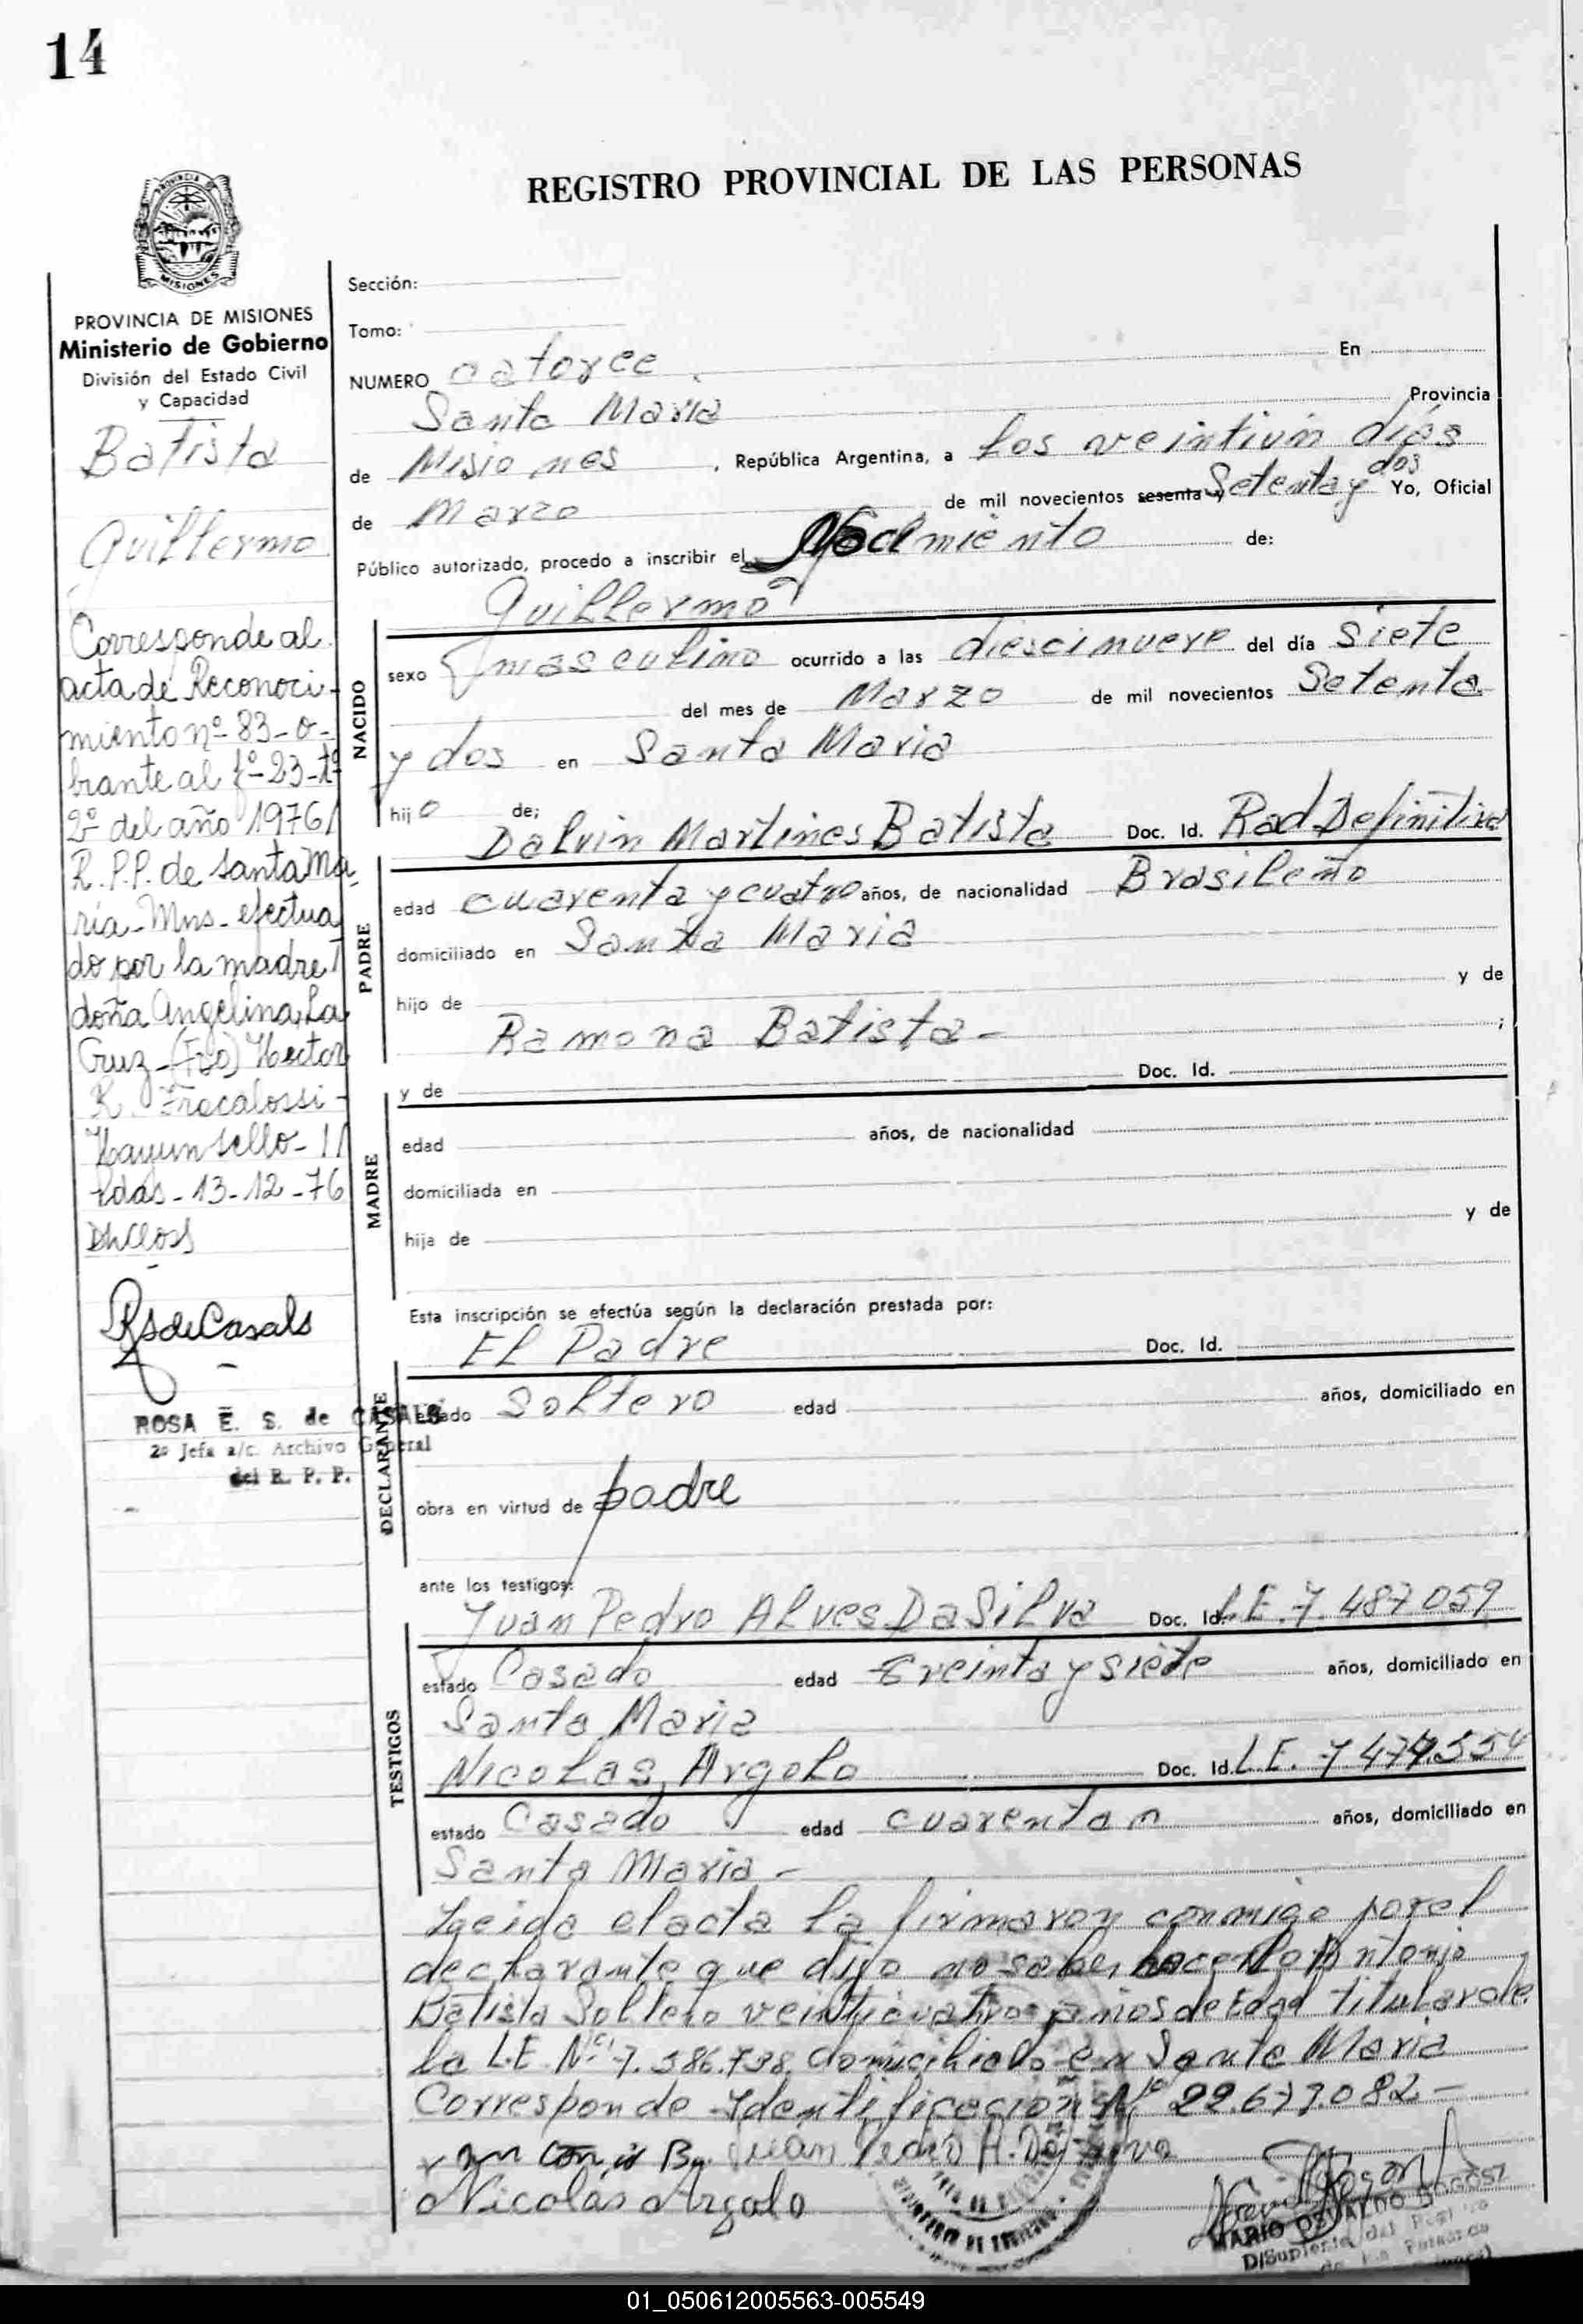 14
REGISTRO PROVINCIAL DE LAS PERSONAS
MISIONES
PROVINCIA DE MISIONES
Ministerio de Gobierno
División del Estado Civil
y Capacidad
Batista
Guillermo
Corresponde al
acta de Reconoci-
miento nº 83-o-
brante al fº-23-tº
2º del año 1976/
R.P.P. de Santa Ma-
ría-Mns-efectua
do por la madre
doña Angelina La
Cruz-(Fdo) Hector
R. Fracalossi-
Hay un sello-
Pdas-13-12-76
RSdeCasals
ROSA E. S. de CASALS
2º Jefa a/c. Archivo General
del R. P. P.
Sección:
Tomo:
NUMERO catorce En
Santa Maria Provincia
de Misiones, República Argentina, a los veintiun días
de Marzo de mil novecientos sesenta y Setenta y dos Yo, Oficial
Público autorizado, procedo a inscribir el Nacimiento de:
Guillermo
NACIDO
sexo masculino ocurrido a las diescinueve del día siete
del mes de Marzo de mil novecientos Setenta
y dos en Santa Maria
hijo de;
Dalvin Martines Batista Doc. Id. Rad Definitiva
PADRE
edad cuarenta y cuatro años, de nacionalidad Brasileño
domiciliado en Santa Maria
hijo de y de
Ramona Batista- ;
y de Doc. Id.
MADRE
edad años, de nacionalidad
domiciliada en
hija de y de
Esta inscripción se efectúa según la declaración prestada por:
El Padre Doc. Id.
DECLARANTE
estado Soltero edad años, domiciliado en
obra en virtud de padre
ante los testigos:
Juan Pedro Alves DaSilva Doc. Id. L.E. 7.487.059
TESTIGOS
estado Casado edad treinta y siete años, domiciliado en
Santa Maria
Nicolas Argolo Doc. Id. L.E. 7.474.554
estado Casado edad cuarenta años, domiciliado en
Santa Maria-
Leida el acta la firmaron conmigo por el
declarante que dijo no saber hacerlo Antonio
Batista Soltero veinticuatro años de Edad titular de
la L.E. Nº 7.586.738 domiciliado en Santa Maria
Corresponde Identificacion Nº 22.677.082-
Juan Pedro A. Da Silva
Nicolás Argolo
MARIO OSVALDO
D/Suplente del
01_050612005563-005549